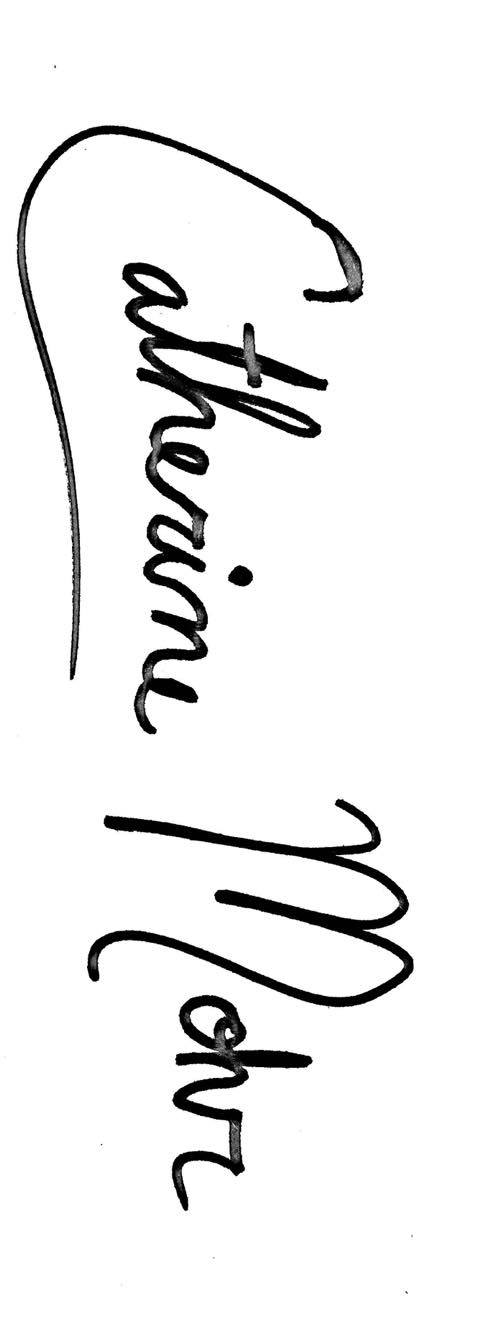 Catherine Mohr